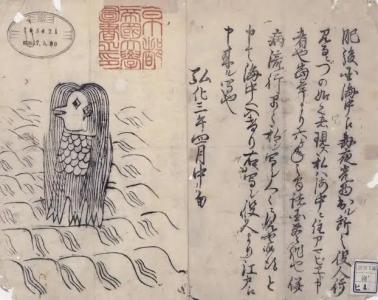 京都
帝國大學
圖書之印
肥後国海中江毎夜光物出ル所之役人行
見るニづの如之者現ス私ハ海中ニ住アマビヱト申
者也當年より六ヶ年之間諸国豊作也併
病流行早々私ヲ写シ人々ニ見セ候得と
申て海中へ入けり右ハ写シ役人より江戸江
申来ル写也
弘化三年四月中旬